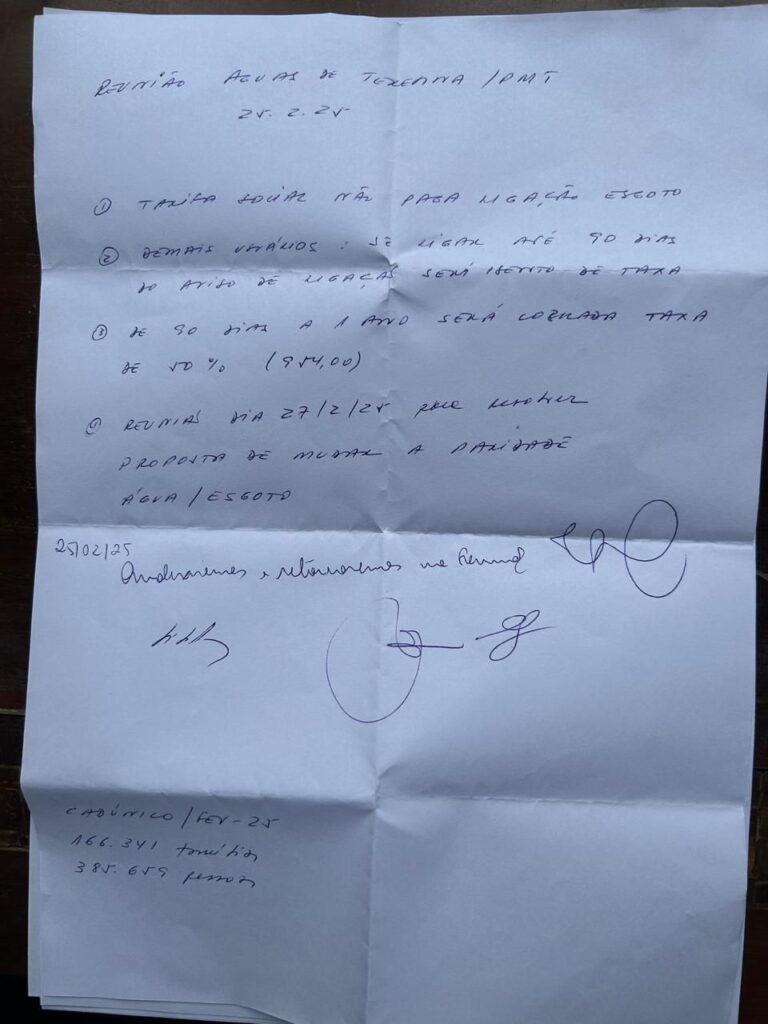 REUNIÃO ÁGUAS DE TERESINA /PMT
25.2.25
① TARIFA SOCIAL NÃO PAGA LIGAÇÃO ESGOTO
② DEMAIS USUÁRIOS: SE LIGAR ATÉ 90 DIAS
DO AVISO DE LIGAÇÃO SERÁ ISENTO DE TAXA
③ DE 90 DIAS A 1 ANO SERÁ COBRADA TAXA
DE 50% (954,00)
④ REUNIÃO DIA 27/2/25 para resolver
PROPOSTA DE MUDAR A PARIDADE
ÁGUA/ESGOTO
25/02/25
e retornaremos
CADÚNICO/FEV-25
166.341 famílias
385.659 pessoas